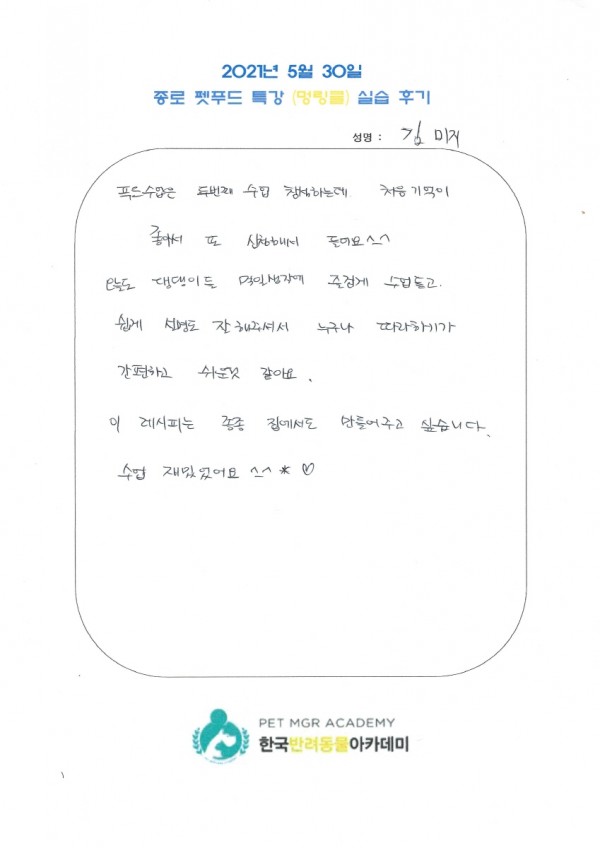 2021년 5월 30일
종로 펫푸드 특강 (멍링클) 실습 후기
성명 : 김 미지
푸드수업은 두번째 수업 참석하는데 처음기억이
좋아서 또 신청해서 들어요^^
오늘도 댕댕이들 먹일생각에 즐겁게 수업듣고.
쉽게 설명도 잘해주셔서 누구나 따라하기가
간편하고 쉬운것 같아요.
이 레시피는 종종 집에서도 만들어주고 싶습니다.
수업 재밌었어요 ^^*♡
PET MGR ACADEMY
한국반려동물아카데미